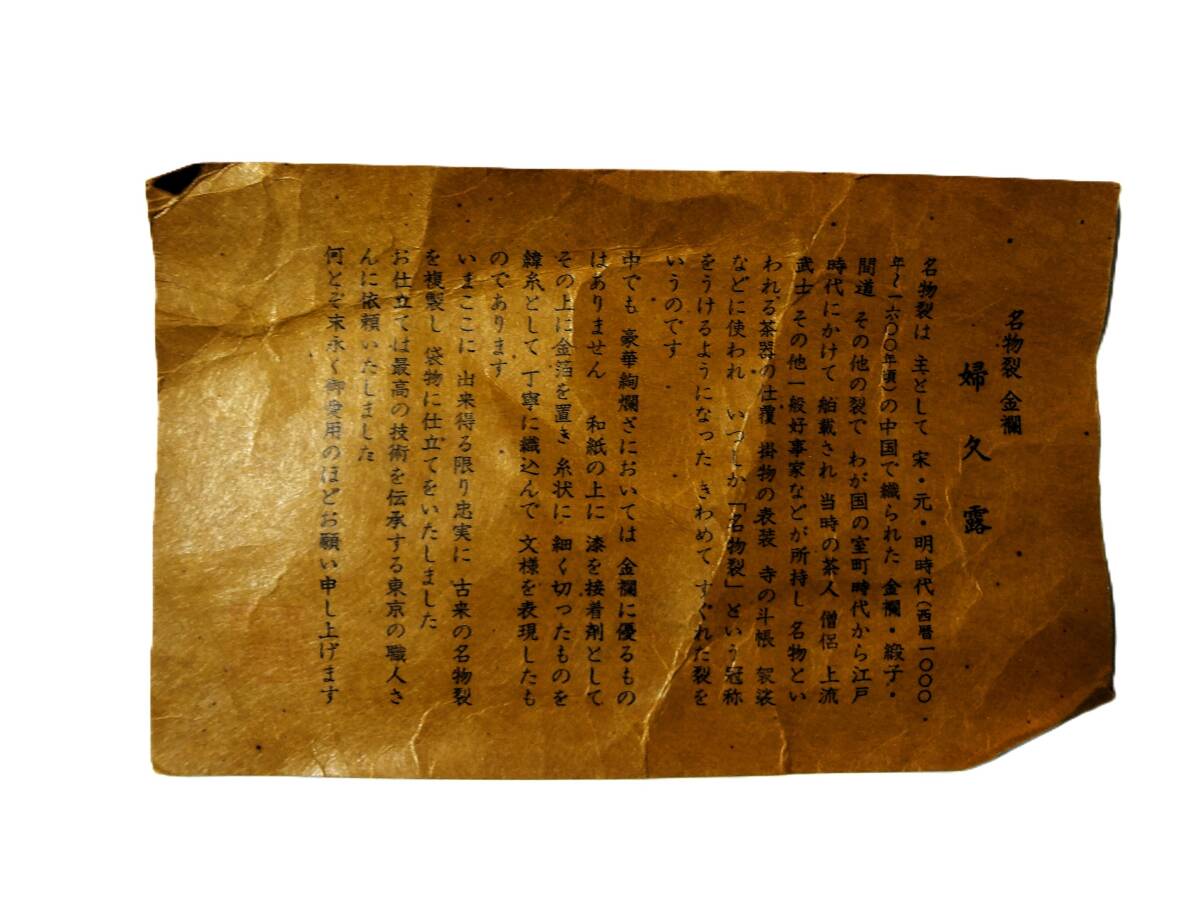 名物裂 金襴
婦久露
名物裂は 主として 宋・元・明時代(西暦一〇〇〇
年〜一六〇〇年頃)の中国で織られた 金襴・緞子・
間道 その他の裂で わが国の室町時代から江戸
時代にかけて 舶載され 当時の茶人 僧侶 上流
武士 その他一般好事家などが所持し 名物とい
われる茶器の仕覆 掛物の表装 寺の斗帳 袈裟
などに使われ いつしか「名物裂」という冠称
をうけるようになった きわめて すぐれた裂を
いうのです
中でも 豪華絢爛さにおいては 金襴に優るもの
はありません 和紙の上に 漆を接着剤として
その上に金箔を置き 糸状に 細く切ったものを
韓糸として 丁寧に織込んで 文様を表現したも
のであります
いまここに 出来得る限り忠実に 古来の名物裂
を複製し 袋物に仕立てをいたしました
お仕立ては最高の技術を伝承する東京の職人さ
んに依頼いたしました
何とぞ末永く御愛用のほどお願い申し上げます